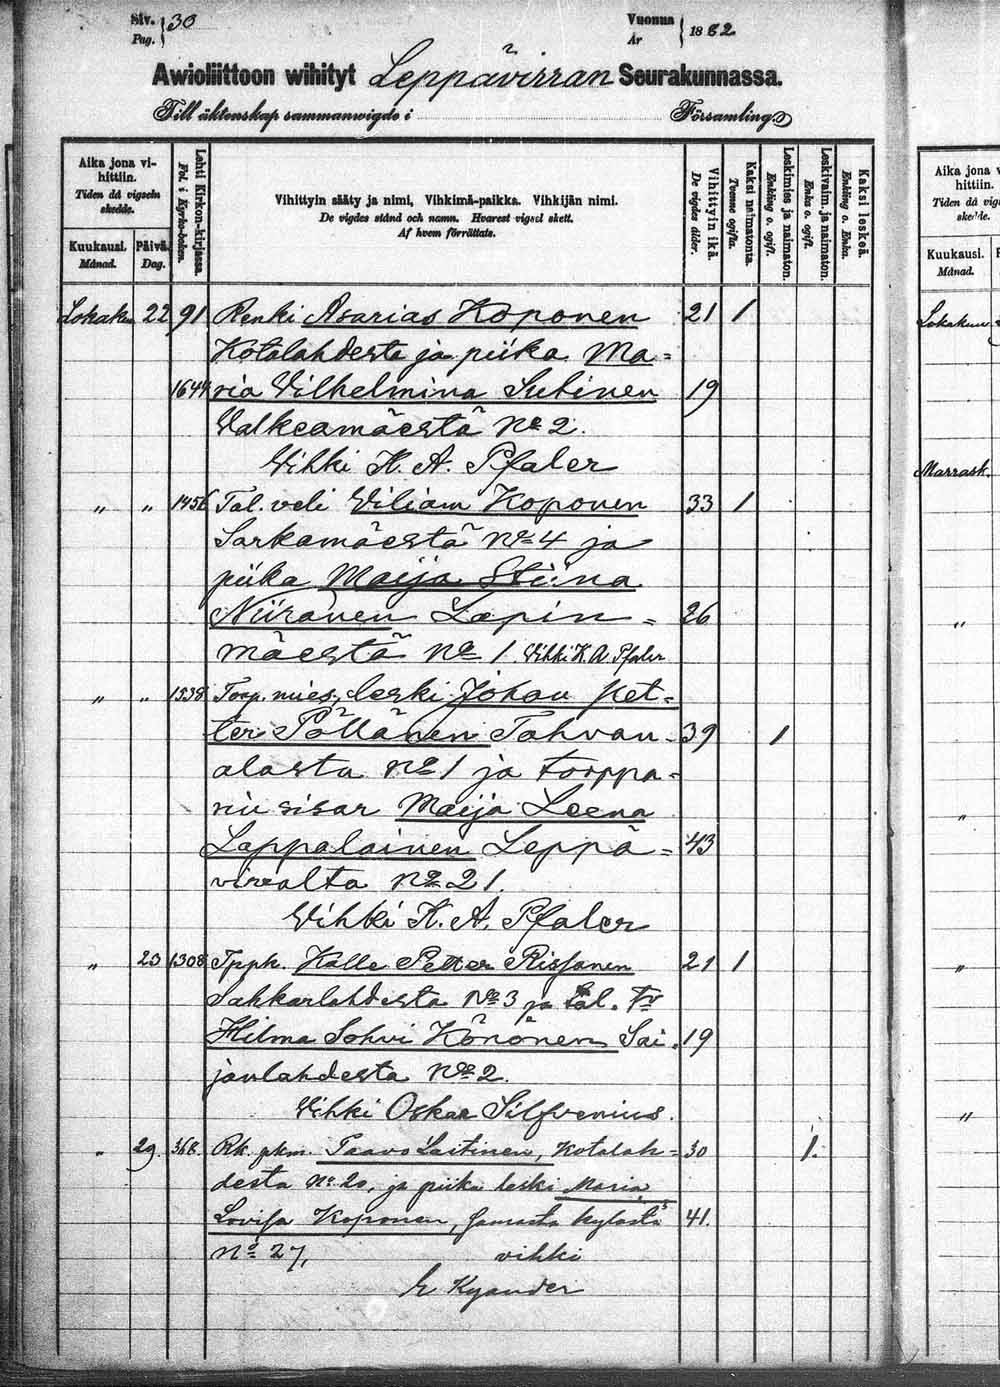 Siv. Pag. } 30
Vuonna År } 1882
Awioliittoon wihityt Leppävirran Seurakunnassa.
Till äktenskap sammanwigde i Församling
Aika jona vihittiin. Tiden då vigseln skedde.
Kuukausi. Månad.
Päivä. Dag.
Lehti Kirkon-kirjassa. Fol. i Kyrko-boken.
Vihittyin sääty ja nimi, Vihkimä-paikka. Vihkijän nimi.
De vigdes stånd och namn. Hvarest vigsel skett.
Af hvem förrättats.
Vihittyin ikä. De vigdes ålder.
Kaksi naimatonta. Tvenne ogifta.
Leskimies ja naimaton. Enkling o. ogift.
Leskivaim. ja naimaton. Enka o. ogift.
Kaksi leskeä. Enkling o. Enka.
Lokakuu 22 91 Renki Asarias Koponen 21 1
Kotalahdesta ja piika Ma=
1644 ria Vilhelmina Sutinen 19
Valkeamäestä No 2.
Vihki K. A. Pfaler
" " 1456 Tal. veli Viliam Koponen 33 1
Sarkamäestä No 4 ja
piika Maija Stiina
Niiranen Lapin= 26
mäestä No 1. Vihki K. A. Pfaler
" " 1538 Torp. mies, leski Johan Pet=
ter Pöllänen Tahvan= 39 1
alasta No 1 ja torppa=
rin sisar Maija Leena
Lappalainen Leppä= 43
virralta No 21.
Vihki K. A. Pfaler
" 23 1308 Tppk. Kalle Petter Rissanen 21 1
Sahkarlahdesta No 3 ja tal. tr
Hilma Sohvi Könönen Sai= 19
janlahdesta No 2.
Vihki Oskar Silfvenius.
" 29. 368. Rk. pkm. Taavo Laitinen, Kotalah= 30 1.
desta No 20, ja piika leski Maria
Lovisa Koponen, samasta kylästä 41.
No 27, vihki
E Kyander
Aika jona v
hittiin.
Tiden då vig
skedde.
Kuukausi.
Månad.
Lokakuu
Marrask.
"
"
"
"